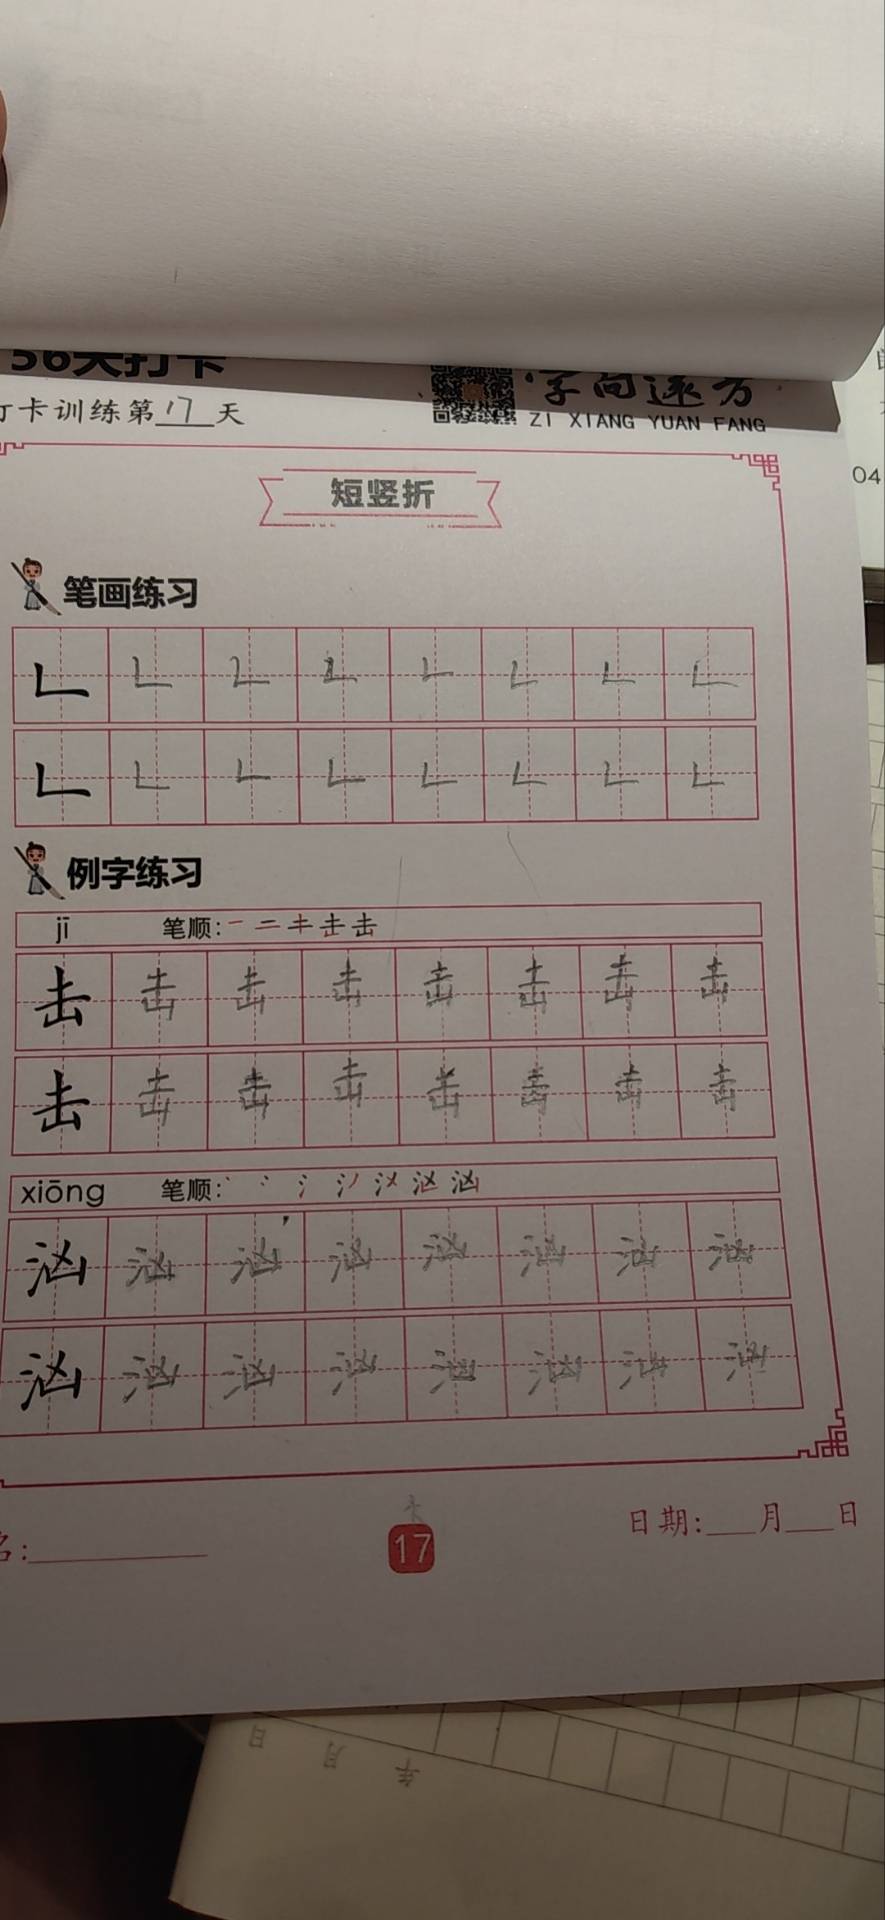 56天打卡
打卡训练第17天
字向远方
ZI XIANG YUAN FANG
04
短竖折
笔画练习
𠃊 𠃊 𠃊 𠃊 𠃊 𠃊 𠃊 𠃊
𠃊 𠃊 𠃊 𠃊 𠃊 𠃊 𠃊 𠃊
例字练习
jī 笔顺:一 二 キ 击 击
击 击 击 击 击 击 击 击
击 击 击 击 击 击 击 击
xiōng 笔顺:
汹 汹 汹 汹 汹 汹 汹 汹
汹 汹 汹 汹 汹 汹 汹 汹
名:
17
日期:___月___日
年 月 日